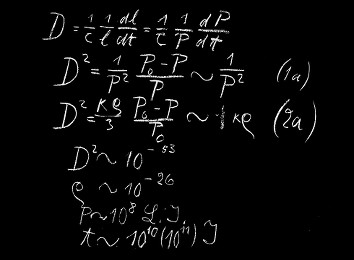 D = 1/c 1/l dl/dt = 1/c 1/P dP/dt
D² = 1/P² (P₀-P)/P ~ 1/P² (1a)
D² = κρ/3 (P₀-P)/P₀ ~ ⅓ κρ (2a)
D² ~ 10⁻⁵³
ρ ~ 10⁻²⁶
P ~ 10⁸ L. J.
t ~ 10¹⁰(10¹¹) J